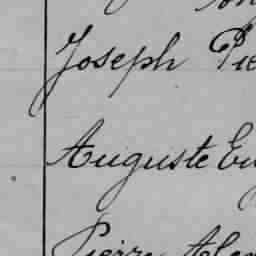 Joseph Pie
Auguste Eu
Pierre Ale